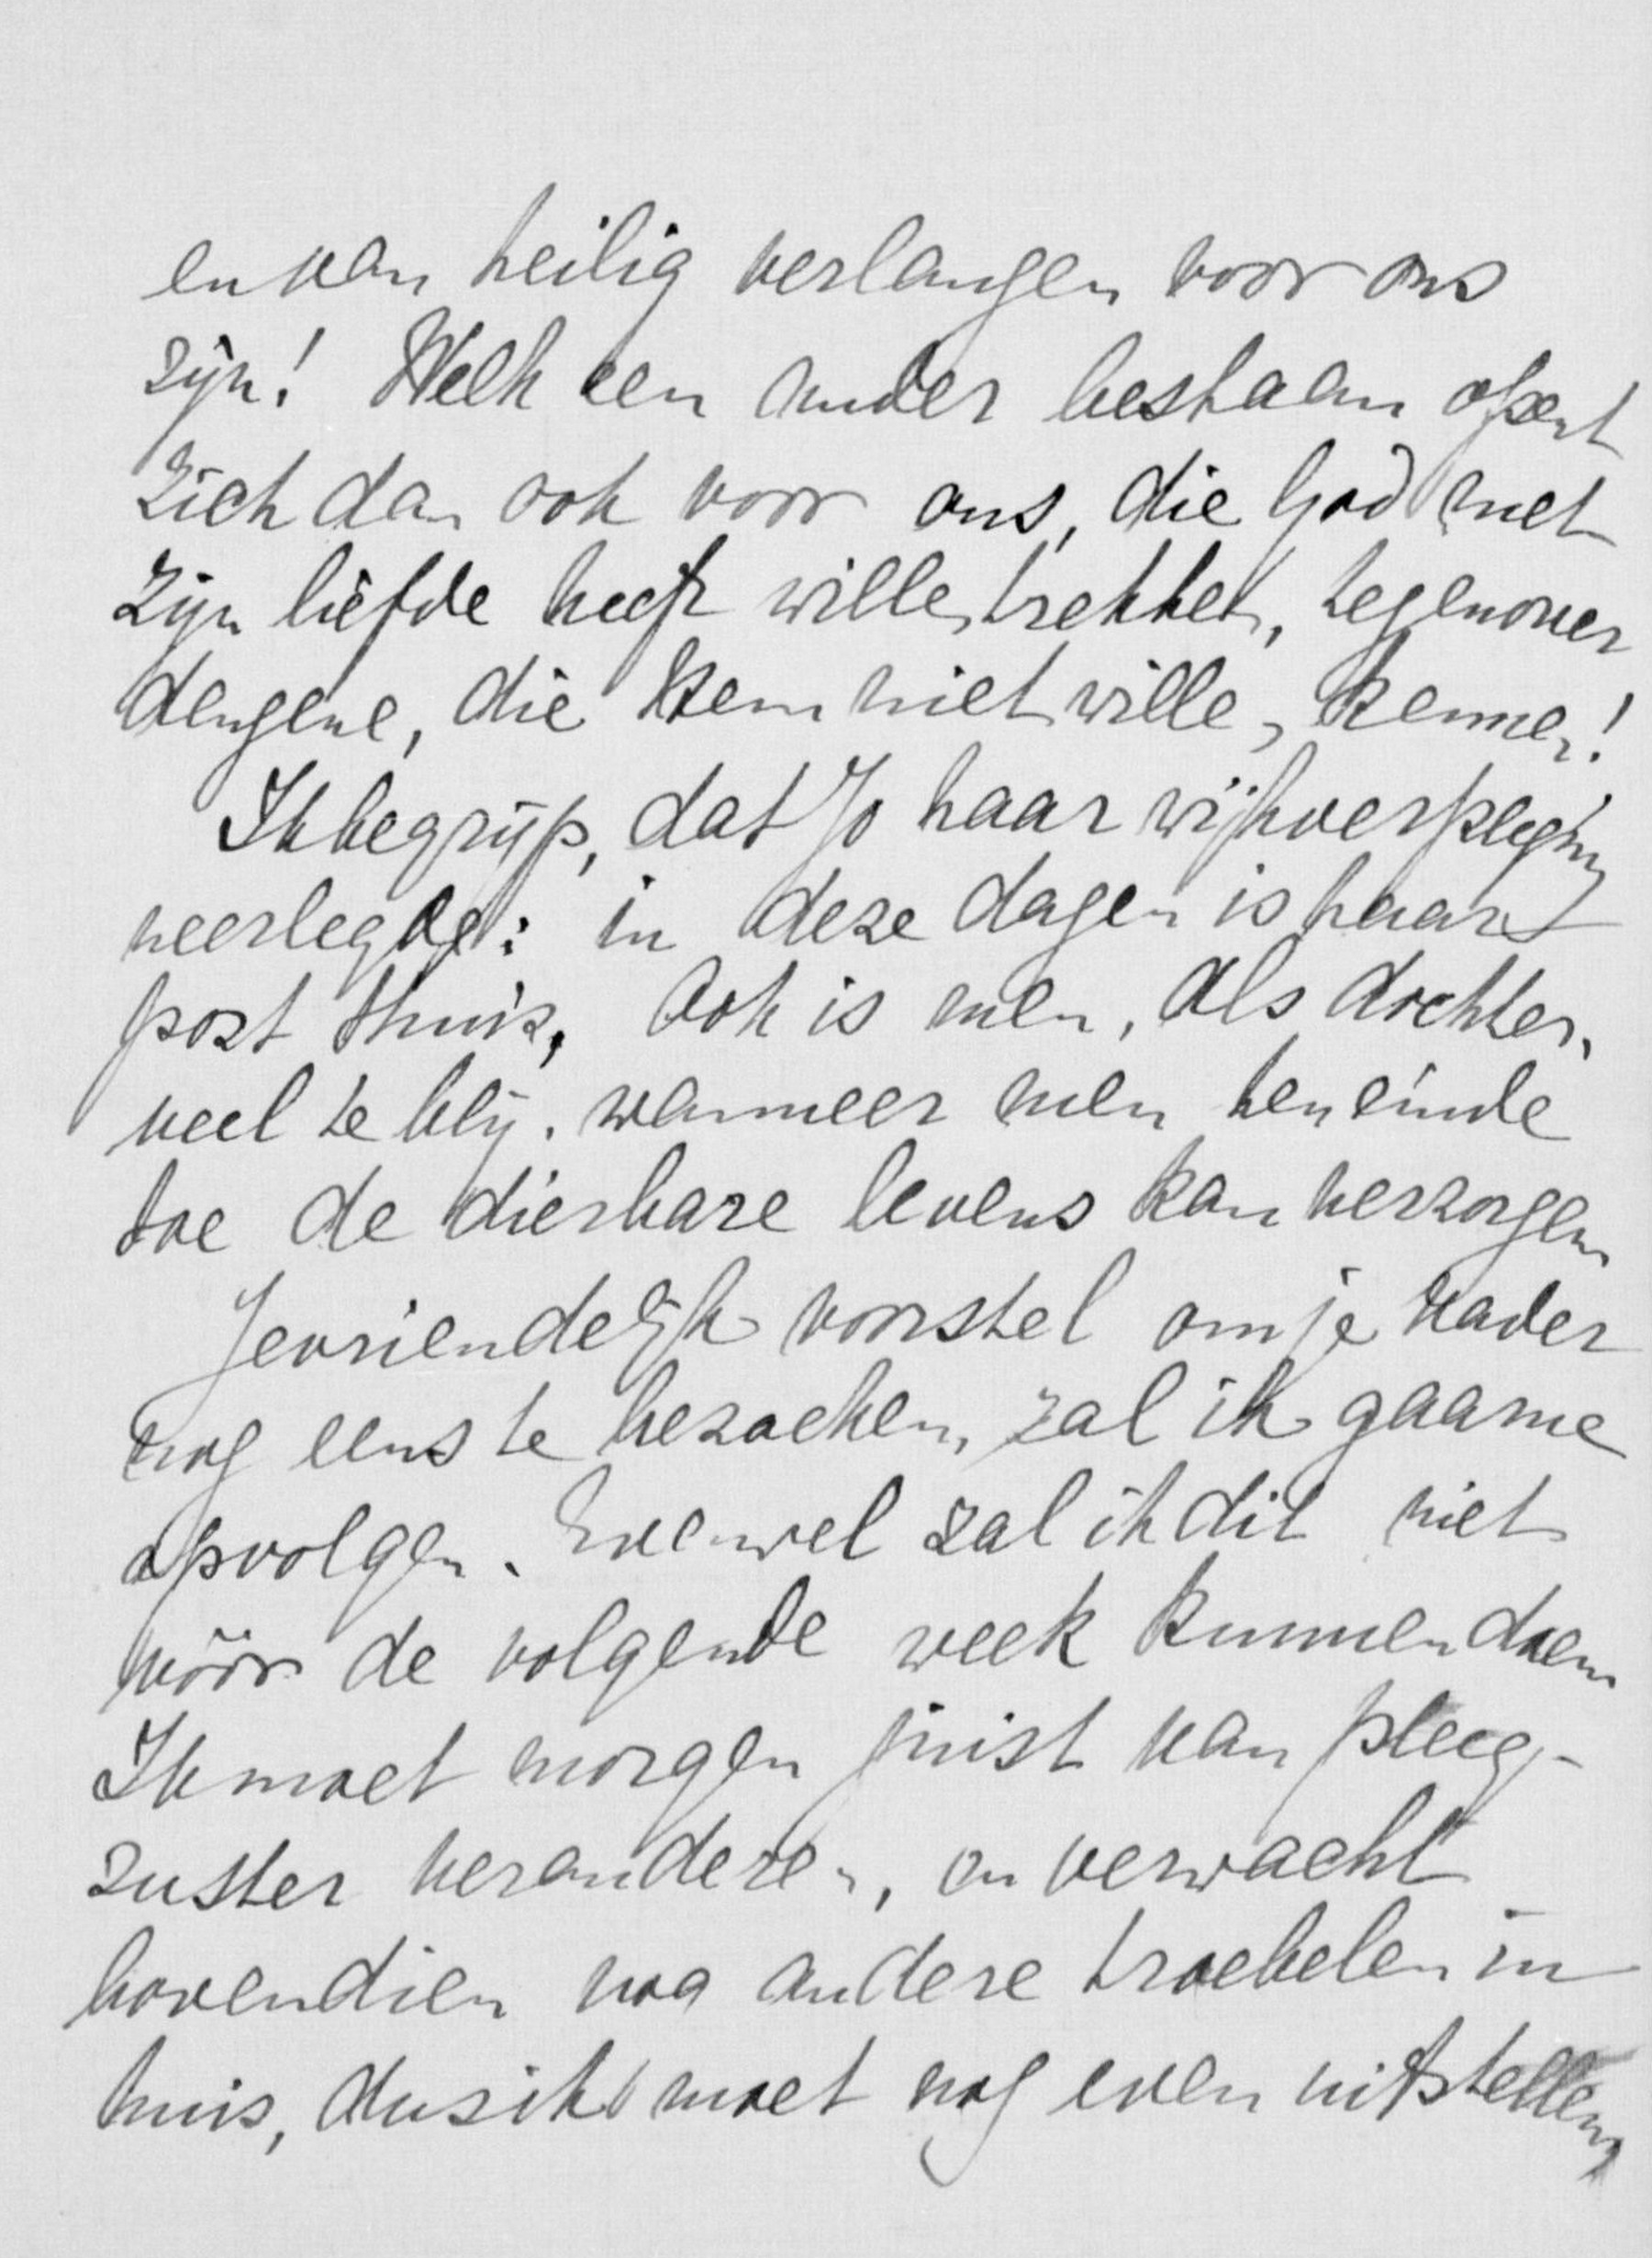 en van heilig verlangen voor ons
zijn! Welk een ander bestaan opent
zich dan ook voor ons, die God met
Zijn liefde heeft willen trekken, tegenover
dengene, die Hem niet willen kennen!
Ik begrijp, dat Jo haar wijkverpleging
neerlegde: in deze dagen is haar
post thuis. Ook is men, als dochter,
veel te blij, wanneer men ten einde
toe de dierbare levens kan verzorgen
Je vriendelijk voorstel om je Vader
nog eens te bezoeken, zal ik gaarne
opvolgen. Evenwel zal ik dit niet
vóór de volgende week kunnen doen
Ik moet morgen juist van pleeg-
zuster veranderen, en verwacht
bovendien nog andere troebelen in
huis, dus ik moet nog even uitstellen,